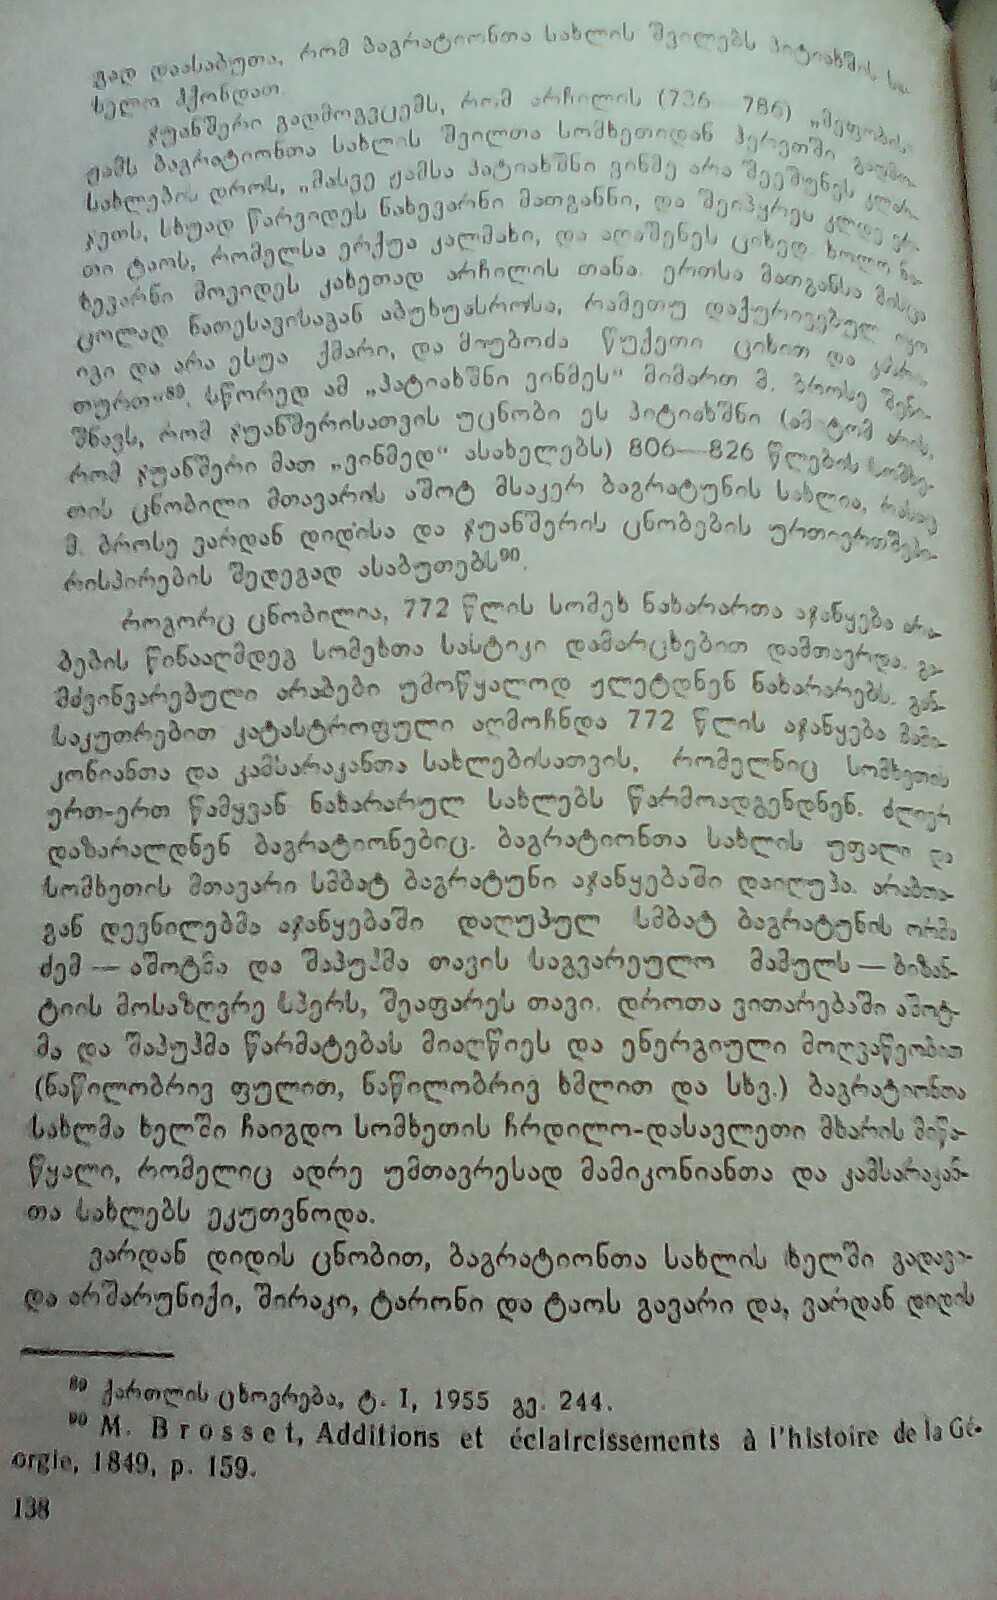 ვად დაასაბუთა, რომ ბაგრატიონთა სახლის შვილებს პიტიახშის სა-
ხელო ჰქონდათ.
ჯუანშერი გადმოგვცემს, რომ არჩილის (736 786) „მეფობის
ჟამს ბაგრატიონთა სახლის შვილთა სომხეთიდან ჰერეთში გადმო-
სახლების დროს, „მასვე ჟამსა პატიახშნი ვინმე არა შეეშუნეს კლარ-
ჯეთს, სხუად წარვიდეს ნახევარნი მათგანნი, და შეიპყრეს კლდე ერ-
თი ტაოს, რომელსა ერქუა კალმახი, და აღაშენეს ციხედ. ხოლო ნა-
ხევარნი მოვიდეს კახეთად არჩილის თანა. ერთსა მათგანსა მისცა
ცოლად ნათესავისაგან აბუხუასროსა, რამეთუ დაქურივებულ იყო
იგი და არა ესუა ქმარი, და მიუბოძა წუქეთი ციხით და კასრი-
თურთ“⁸⁹. სწორედ ამ „პატიახშნი ვინმეს“ მიმართ მ. ბროსე შენი-
შნავს, რომ ჯუანშერისათვის უცნობი ეს პიტიახშნი (ამიტომ არის,
რომ ჯუანშერი მათ „ვინმედ“ ასახელებს) 806—826 წლების სომხე-
თის ცნობილი მთავარის აშოტ მსაკერ ბაგრატუნის სახლია, რასაც
მ. ბროსე ვარდან დიდისა და ჯუანშერის ცნობების ურთიერთშეპი-
რისპირების შედეგად ასაბუთებს⁹⁰.
როგორც ცნობილია, 772 წლის სომეხ ნახარართა აჯანყება არა-
ბების წინააღმდეგ სომეხთა სასტიკი დამარცხებით დამთავრდა. გა-
მძვინვარებული არაბები უმოწყალოდ ჟლეტდნენ ნახარარებს. გან-
საკუთრებით კატასტროფული აღმოჩნდა 772 წლის აჯანყება მამი-
კონიანთა და კამსარაკანთა სახლებისათვის, რომელნიც სომხეთის
ერთ-ერთ წამყვან ნახარარულ სახლებს წარმოადგენდნენ. ძლიერ
დაზარალდნენ ბაგრატიონებიც. ბაგრატიონთა სახლის უფალი და
სომხეთის მთავარი სმბატ ბაგრატუნი აჯანყებაში დაიღუპა. არაბთა-
გან დევნილებმა აჯანყებაში დაღუპულ სმბატ ბაგრატუნის ორმა
ძემ — აშოტმა და შაპუჰმა თავის საგვარეულო მამულს — ბიზან-
ტიის მოსაზღვრე სპერს, შეაფარეს თავი. დროთა ვითარებაში აშოტ-
მა და შაპუჰმა წარმატებას მიაღწიეს და ენერგიული მოღვაწეობით
(ნაწილობრივ ფულით, ნაწილობრივ ხმლით და სხვ.) ბაგრატიონთა
სახლმა ხელში ჩაიგდო სომხეთის ჩრდილო-დასავლეთი მხარის მიწა-
წყალი, რომელიც ადრე უმთავრესად მამიკონიანთა და კამსარაკან-
თა სახლებს ეკუთვნოდა.
ვარდან დიდის ცნობით, ბაგრატიონთა სახლის ხელში გადავი-
და არშარუნიქი, შირაკი, ტარონი და ტაოს გავარი და, ვარდან დიდის
⁸⁹ ქართლის ცხოვრება, ტ. I, 1955 გე. 244.
⁹⁰ M. Brosset, Additions et éclaircissements à l'histoire de la Gé-
orgie, 1849, p. 159.
138